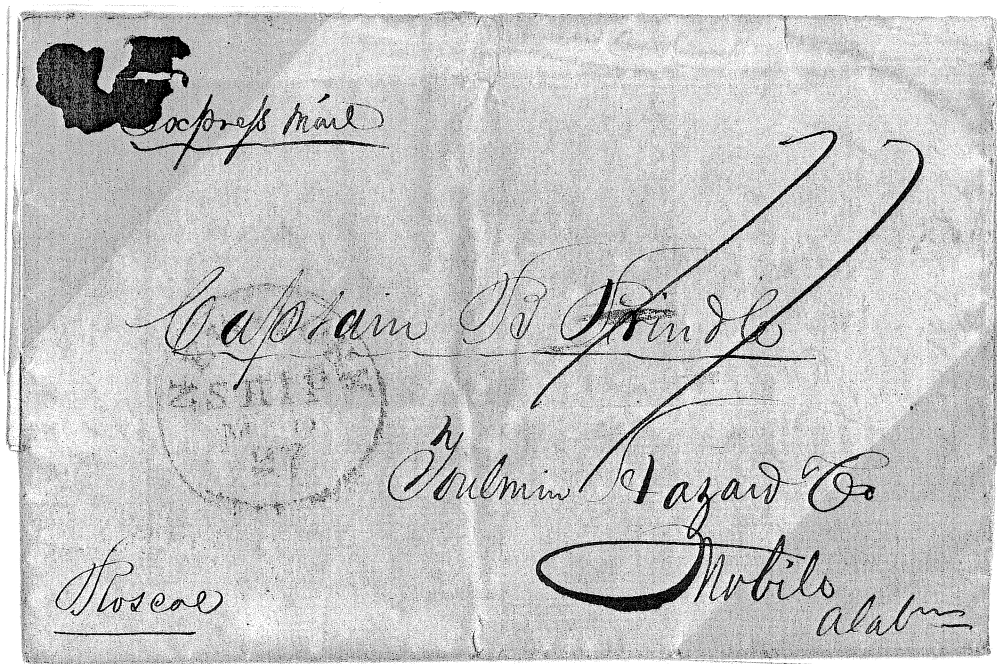 Express Mail
Captain B Trindle
Toulmin Hazard & Co
Mobile
Alabm
Roscoe